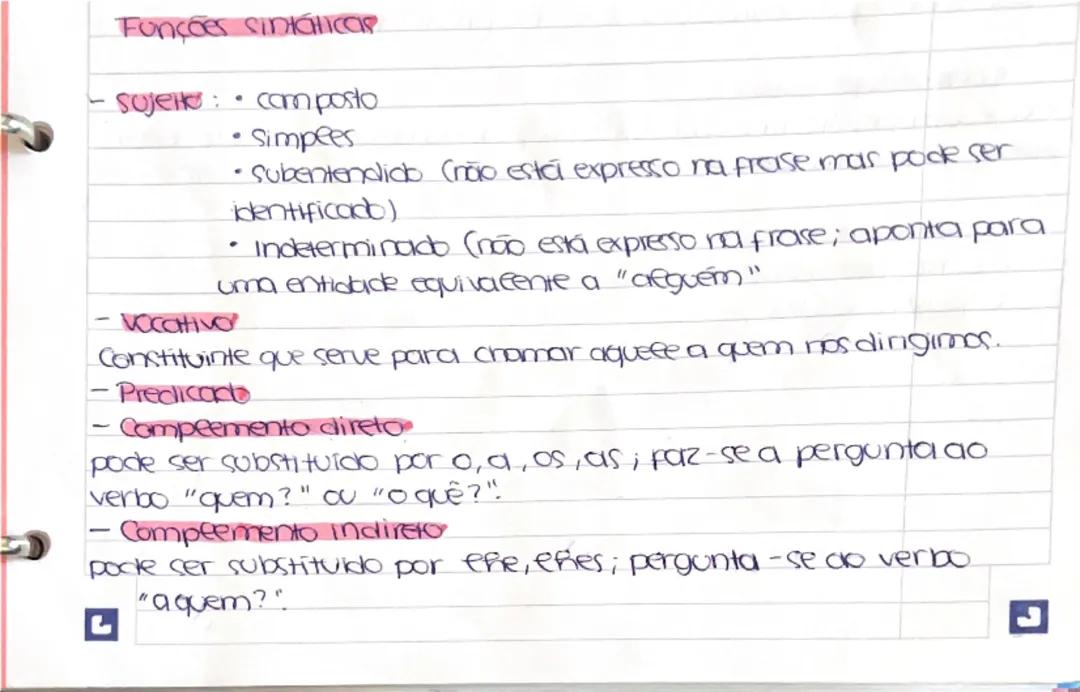 Funções sintáticas
- sujeito : • composto
• Simples
• Subentendido (não está expresso na frase mas pode ser
identificado)
• Indeterminado (não está expresso na frase; aponta para
uma entidade equivalente a "alguém"
- Vocativo
Constituinte que serve para chamar aquele a quem nos dirigimos.
- Predicado
- Complemento direto
pode ser substituído por o, a, os, as; faz-se a pergunta ao
verbo "quem?" ou "o quê?".
- Complemento indireto
pode ser substituido por lhe, lhes; pergunta-se ao verbo
"a quem?".